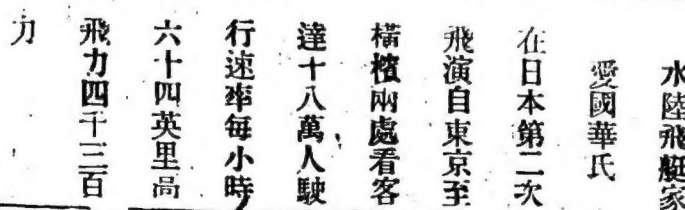 水陸飛艇家
愛國華氏
在日本第二次
飛演自東京至
橫檳兩處看客
達十八萬人駛
行速率每小時
六十四英里高
飛力四千三百
力